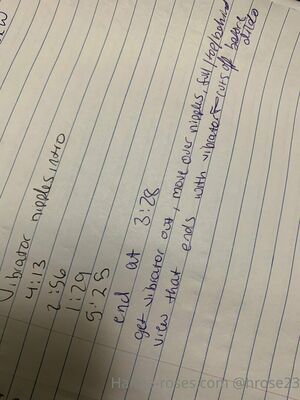 Vibrator nipples, intro
4:13
2:56
1:29
5:25
end at 3:28
get vibrator out, move over nipples, full/top/behind
view that ends with vibrator cuts off before
dildo
roses.com @hrose23